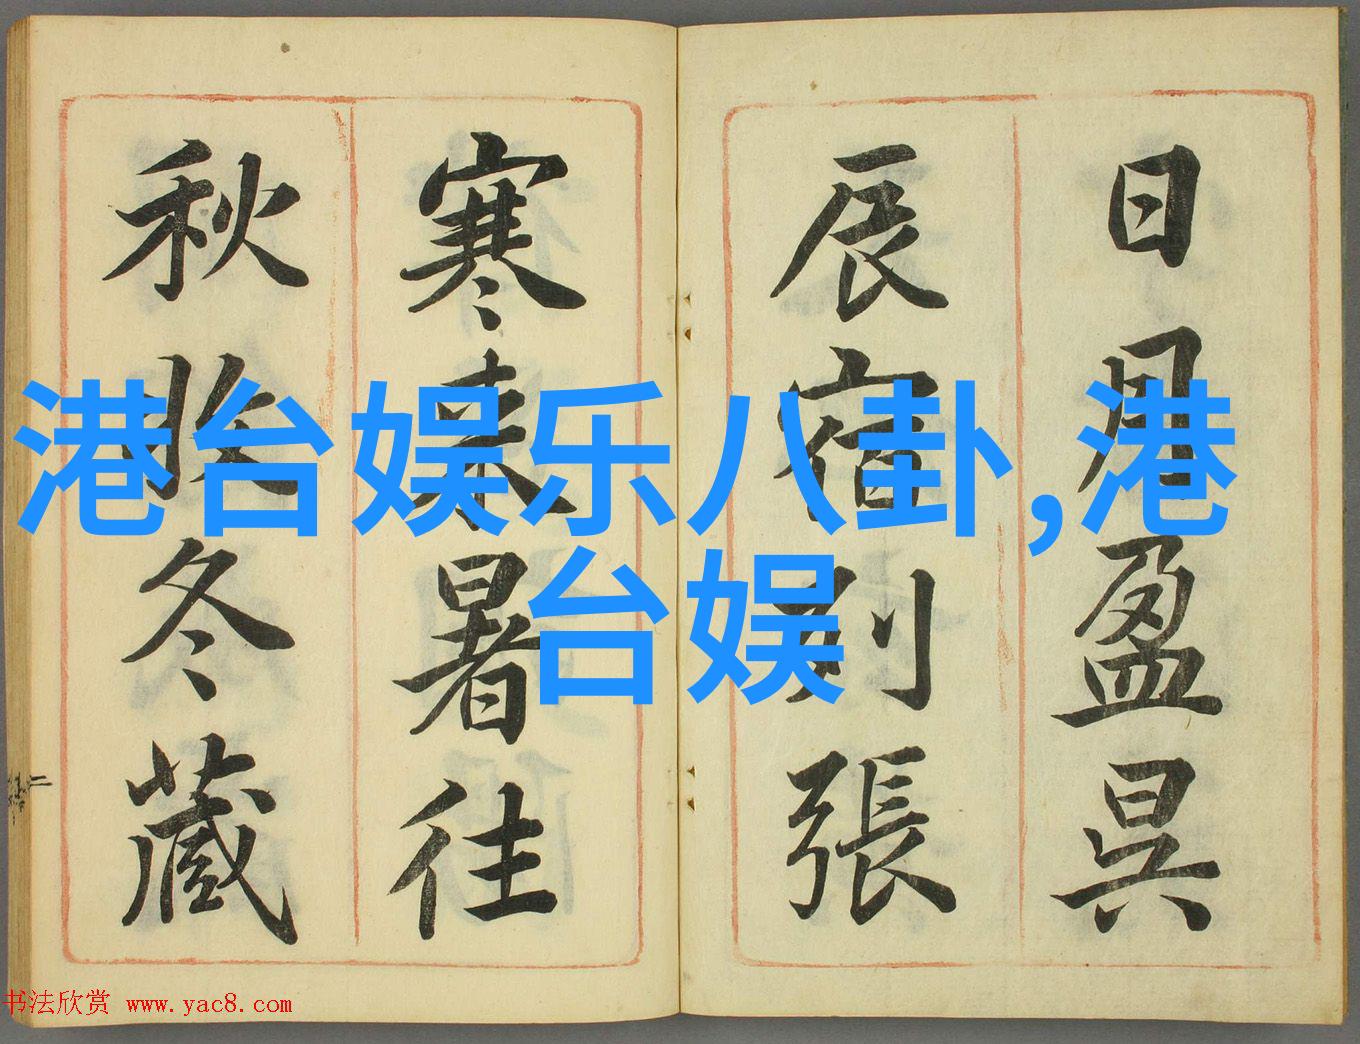 日月盈昃
辰宿列張
寒来暑往
秋收冬藏
港台娱乐八卦,港
台娱
书法欣赏 www.yac8.com